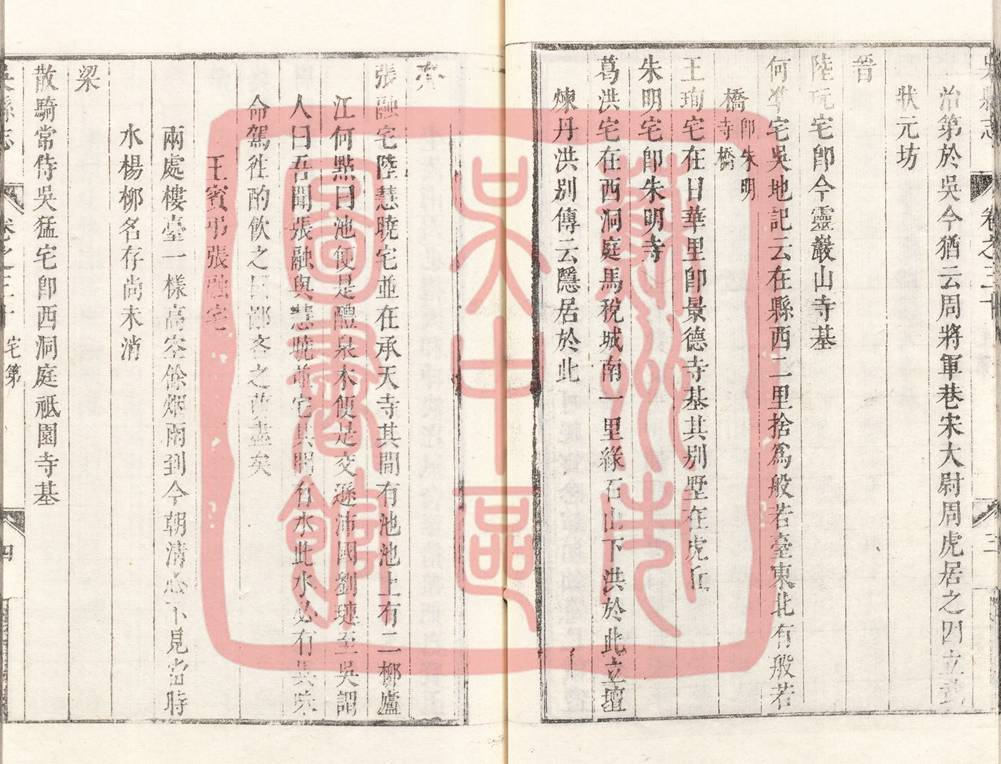 吳縣志
卷之三十
三
治第於吳今猶云周將軍巷宋大尉周虎居之因立武
狀元坊
晉
陸玩宅卽今靈巖山寺基
何準宅吳地記云在縣西二里捨爲般若臺東北有般若
橋卽朱明寺橋
王珣宅在日華里卽景德寺基其别墅在虎丘
朱明宅卽朱明寺
葛洪宅在西洞庭馬稅城南一里綠石山下洪於此立壇
煉丹洪别傳云隱居於此
齊
張融宅陸慧曉宅並在承天寺其間有池池上有二柳廬
江何點曰池便是醴泉木便是交遜沛國劉璡至吳謂
人曰吾聞張融與慧曉並宅其間有水此水必有異味
命駕往酌飲之曰鄙吝之萌盡矣
王賓弔張融宅
兩處樓臺一樣高空餘煙雨到今朝清心不見當時
水楊柳名存尚未消
梁
散騎常侍吳猛宅卽西洞庭祇園寺基
吳縣志
卷之三十
宅第
四
蘇州市
吳中區
圖書館